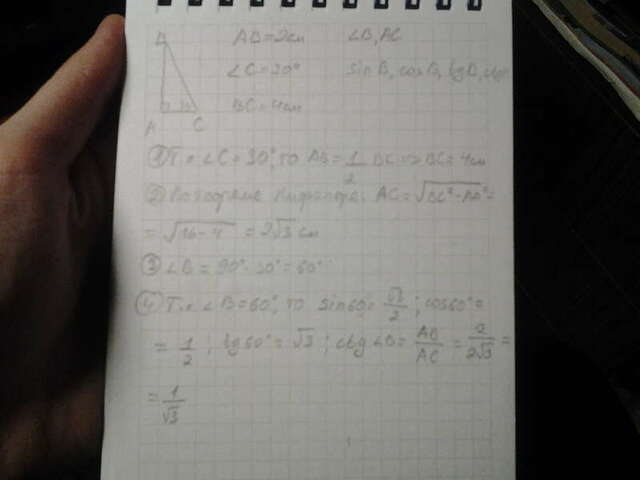 B AB = 2см ∠B, AC
∠C = 30° sin B, cos B, tg B, ctg B
BC = 4см
A C
① Т.к ∠C = 30°, то AB = 1/2 BC => BC = 4см
② По теореме Пифагора: AC = √BC² - AB² =
= √16 - 4 = 2√3 см
③ ∠B = 90° - 30° = 60°
④ Т.к ∠B = 60°, то sin60° = √3/2 ; cos60° =
= 1/2 ; tg60° = √3 ; ctg∠B = AB/AC = 2/2√3 =
= 1/√3